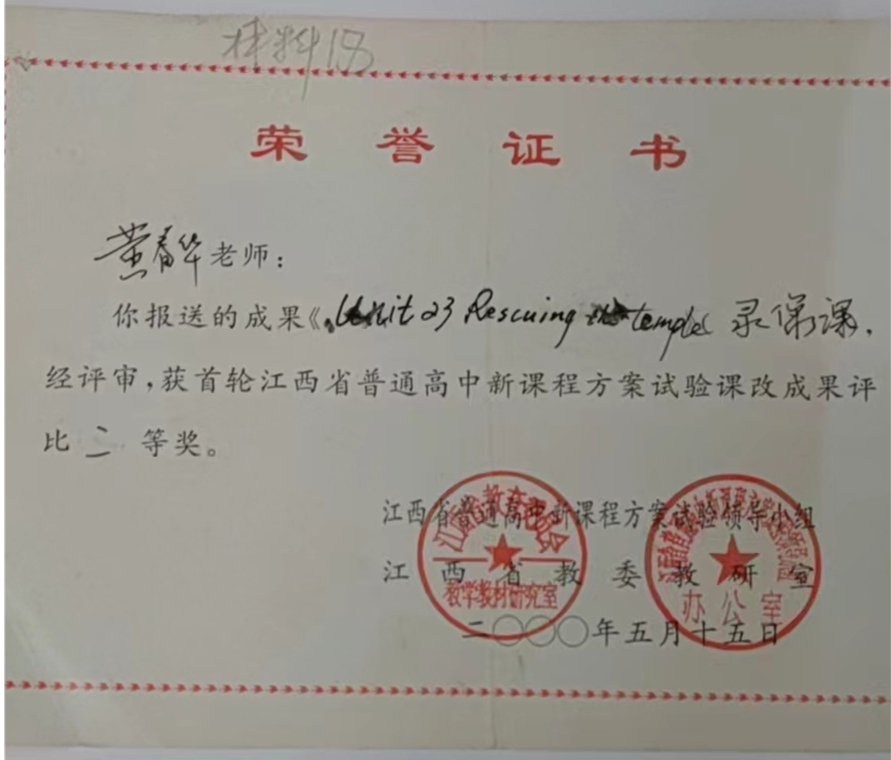 材料18
荣誉证书
黄春华老师:
你报送的成果《Unit 23 Rescuing the temple 录像课,
经评审,获首轮江西省普通高中新课程方案试验课改成果评
比二等奖。
江西省普通高中新课程方案试验领导小组
江西省教委教研室
二〇〇〇年五月十五日
江西省教育委员会
教学教材研究室
办公室